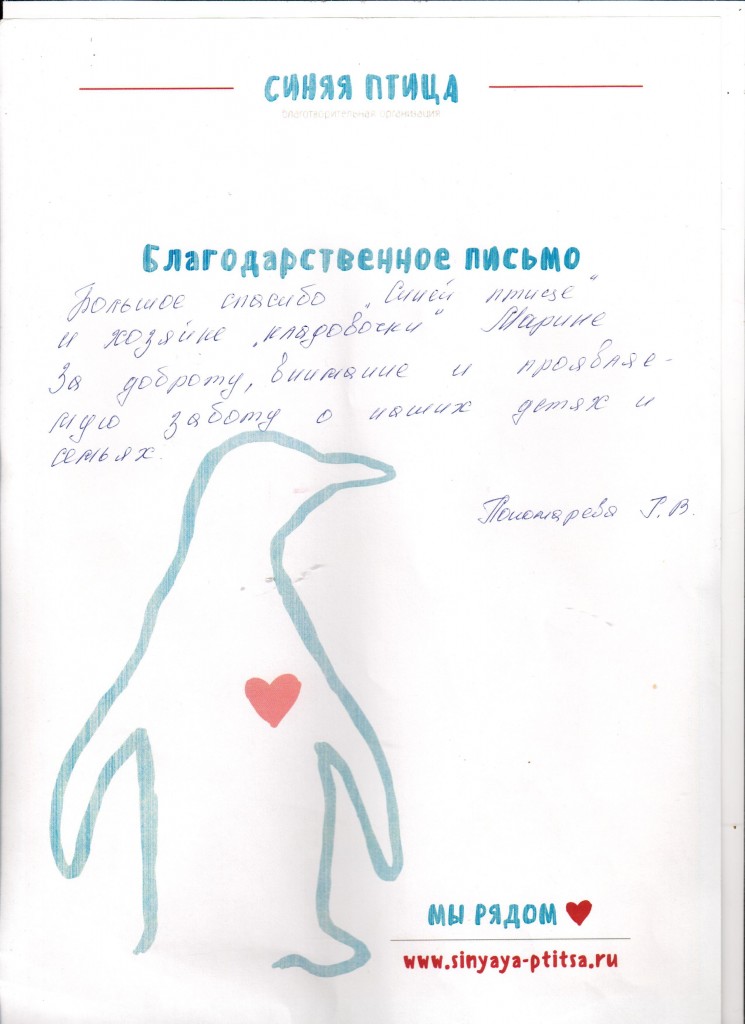 СИНЯЯ ПТИЦА
благотворительная организация
Благодарственное письмо
Большое спасибо „Синей птице"
и хозяйке „кладовочки" Марине
За доброту, внимание и проявляе-
мую заботу о наших детях и
семьях.
Пономарева Г.В.
МЫ РЯДОМ
www.sinyaya-ptitsa.ru